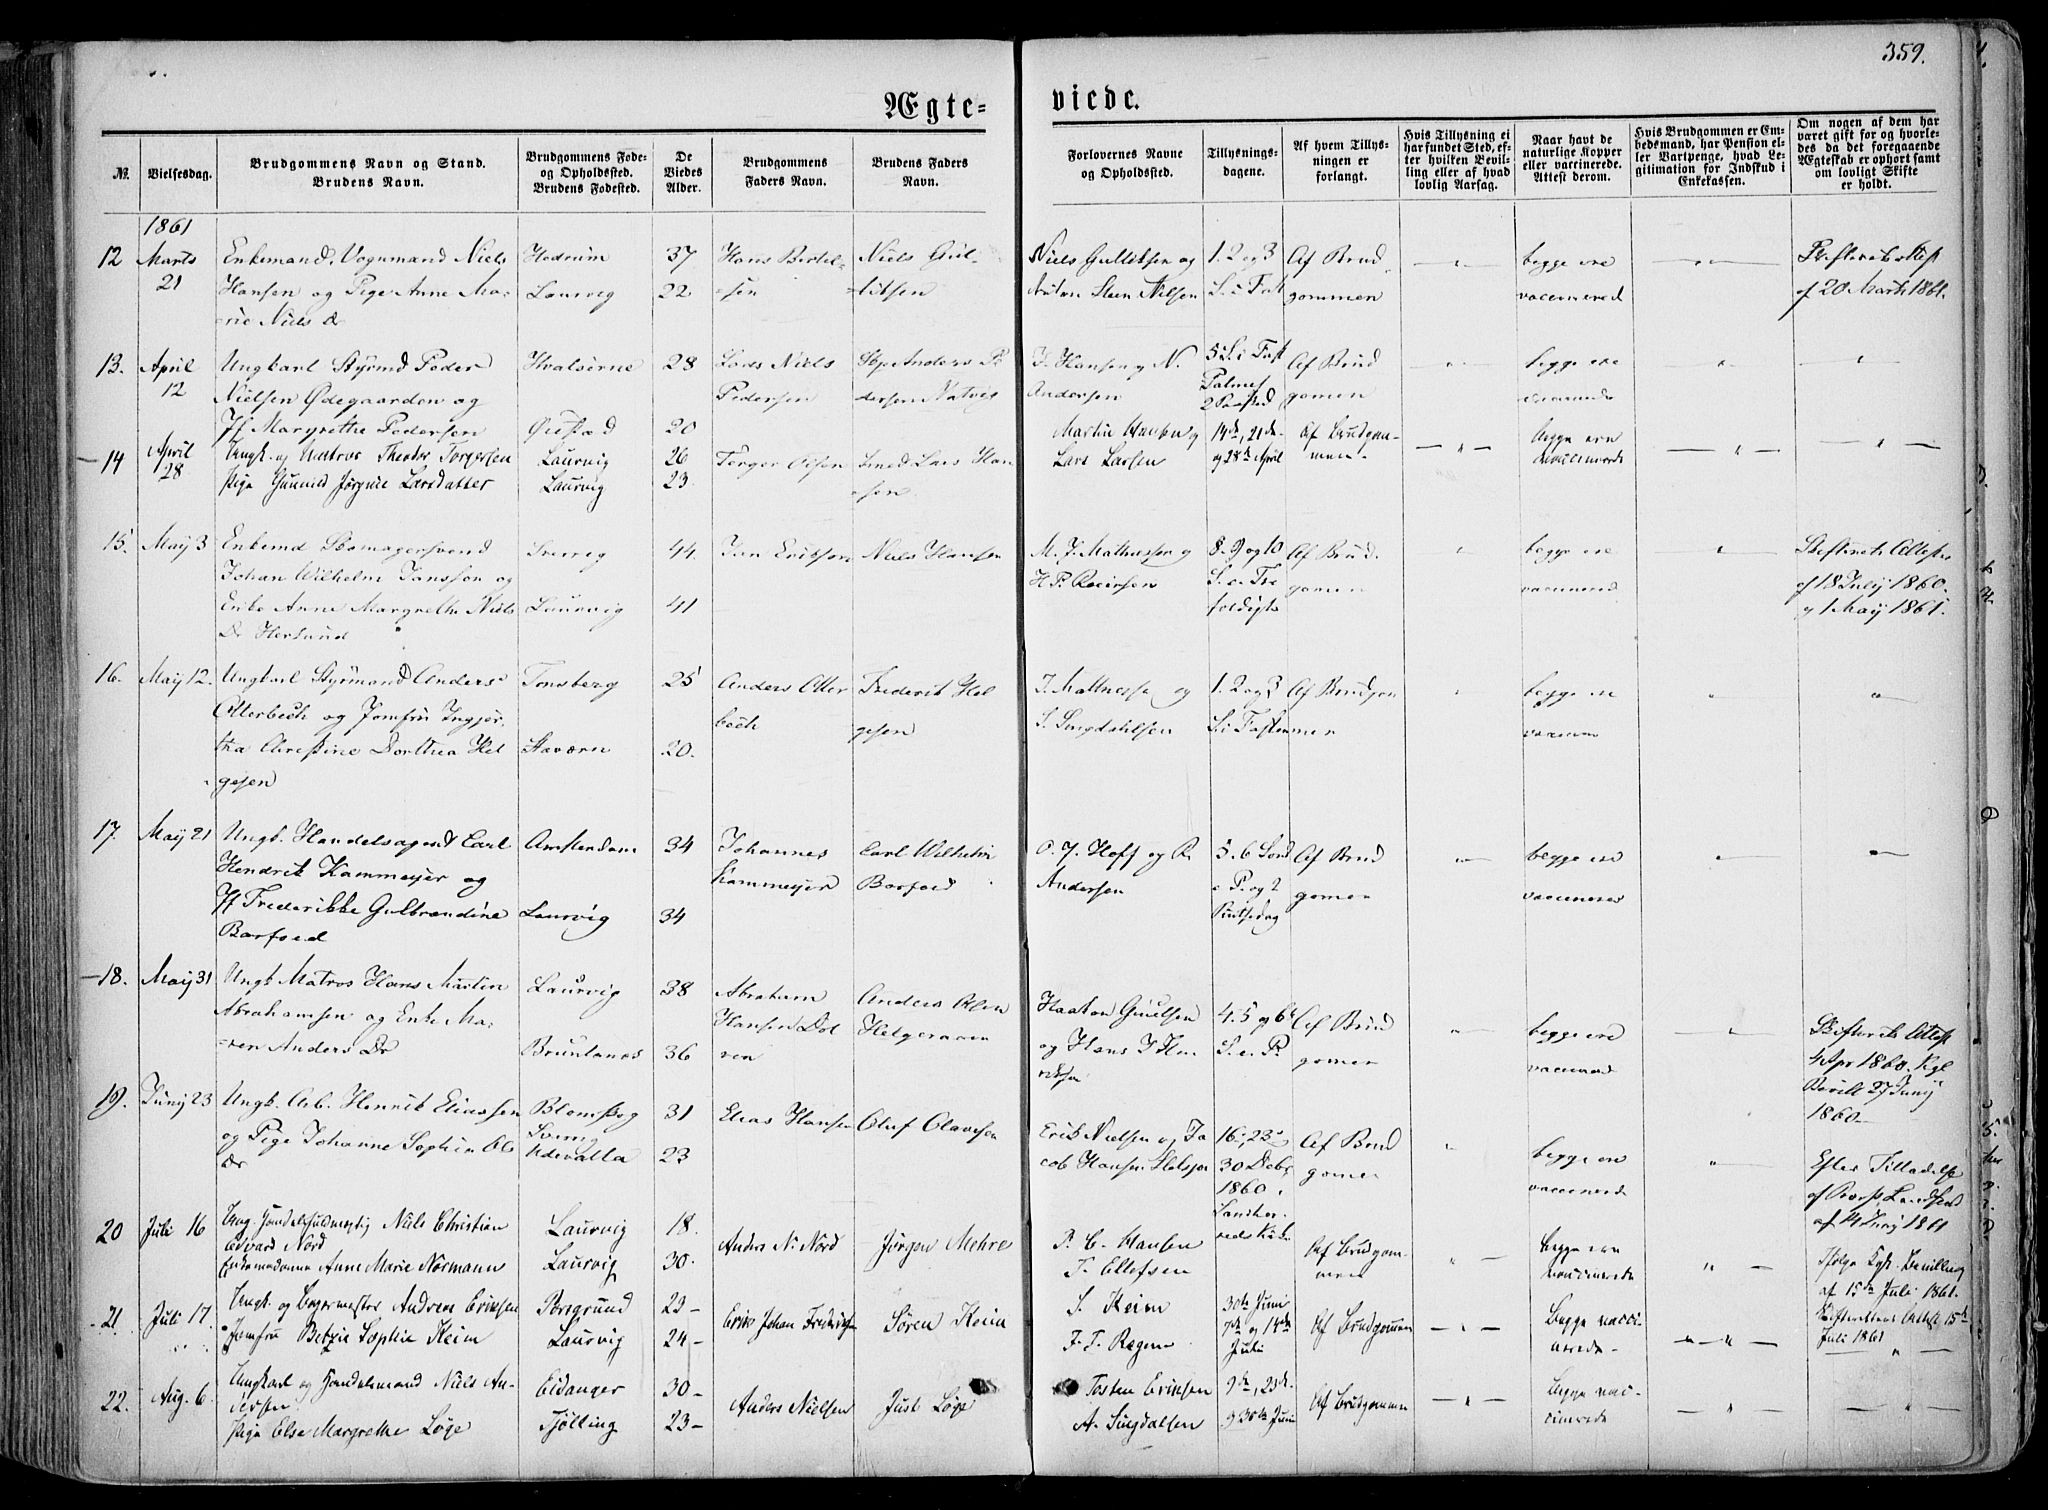 359.
Ægte- viede.
No.
Vielsesdag.
Brudgommens Navn og Stand.
Brudens Navn.
Brudgommens Føde-
og Opholdssted.
Brudens Fødested.
De
Viedes
Alder.
Brudgommens
Faders Navn.
Brudens Faders
Navn.
Forlovernes Navne
og Opholdssted.
Tillysnings-
dagene.
Af hvem Tillys-
ningen er
forlangt.
Hvis Tillysning ei
har fundet Sted, ef-
ter hvilken Bevil-
ling eller af hvad
lovlig Aarsag.
Naar havt de
naturlige Kopper
eller vaccinerede.
Attest derom.
Hvis Brudgommen er Em-
bedsmand, har Pension el-
ler Vartpenge, hvad Le-
gitimation for Indskud i
Enkekassen.
Om nogen af dem har
været gift før og hvorle-
des da det foregaaende
Ægteskab er ophørt samt
om lovligt Skifte
er holdt.
1861
12 Marts 21
Enkemand, Vognmand Niels
Hansen og Pige Anne Ma-
rie Niels Dr
Hedrum
Laurvig
37
22
Hans Bertel-
sen
Niels Gul-
liksen
Niels Gulliksen og
Anton Steen Nilsen
1. 2 og 3
S. i Fast
Af Brud
gommen
begge ere
vaccinerede
Skifterets Attest
af 20 Marts 1861.
13. April 12
Ungkarl Styrmd Peder
Nielsen Ødegaarden og
Jf Margrethe Pedersen
Hvaløerne
Øiestad
28
20
Lods Niels
Pedersen
Skp. Anders Pe
dersen Natvig
J. Hansen og N.
Andersen
5 S. i Fast
Palmes
2 Paasked
Af Brud
gomen
begge ere
vaccinerede
14 April 28
Ungk. og Matros Theodor Torgersen
Pige Gunild Jørgine Larsdatter
Laurvig
Laurvig
26
23.
Torger Olsen
Smed Lars Han
sen.
Martin Hansen og
Lars Larsen
14de, 21de
og 28de April
Af Brudgom-
men.
Begge ere
vaccinerede
15. Maij 3
Enkemd Skomagersvend
Johan Wilhelm Jansson og
Enke Anne Margrethe Niels
Dr Hersund
Sverrig
Laurvig
44.
41
Jan Erikson
Niels Hansen
M. J. Mathesson og
H. P. Reiersen
8. 9 og 10
S. e. Tre
foldighs
Af Brud
gomen
begge ere
vaccinerede
Skifterets Attester
af 18 Julij 1860.
og 1 Maij 1861.
16. Maij 12.
Ungkarl Styrmand Anders
Otterbech og Jomfru Ingjer-
tha Christine Dorthea Hel
gesen
Tønsberg
Staværn
25
20.
Anders Otter
bech
Frederik Hel
gesen
J. Mathesse og
S. Singdahlsen
1. 2 og 3
S. i Fasten
Af Brudgom
men
begge ere
vaccinerede
17. Maij 21
Ungk. Handelsagent Carl
Hendrik Kammeijer og
Jf Frederikke Gulbrandine
Barfoed
Amsterdam
Laurvig
34
34
Johannes
Kammeijer
Carl Wilhelm
Barfoed
O. J. Hoff og R.
Andersen
5. 6 Sønd
e P. og 2
Pintsedag
Af Brud
gomen
begge ere
vaccineres
18. Maij 31
Ungk Matros Hans Martin
Abrahamsen og Enke Ma-
ren Anders Dr
Laurvig
Brunlanæs
38
36
Abraham
Hansen Dol
ven
Anders Olsen
Helgeroen
Haakon Gundsen
og Hans J Hen
riksen
4. 5 og 6t
S. e. P.
Af Brud
gomen
begge ere
vaccinered
Skifterets Attest
4 Apr 1860. Kgl
Bevill 27 Junij
1860
19. Junij 23
Ungk. Arb. Henrik Eliassen
og Pige Johanne Sophie Ols
Dr
Blomskog
Sverrig
Udevalla
31
23
Elias Hansen
Oluf Olavesen
Erik Nielsen og Ja
cob Hansen
16, 23,
30 Decbr
1860.
Sandher
reds Kirke
Af Brud
gomen
begge ere
vaccinerede
Efter Tilladelse
af Provst Lund
af 14 Junij 1861
20 Juli 16
Ung. Handelsfuldmægtig Niels Christian
Edvard Nord
Enkemadame Anne Marie Normann
Laurvig
Laurvig
18.
30.
Anders N. Nord
Jørgen Mehre
P. C. Hansen
T. Ellefsen
Af Brudgom-
men
Begge ere
vaccinerede
Ifølge Kgl. Bevilling
af 15de Juli 1861.
Skifterettens Attest 15de
Juli 1861
21. Juli 17.
Ungk. og Bagermester Andreas Eriksen
Jomfru Betzie Sophie Keim
Porsgrund
Laurvig
23-
24-
Eriks Johan Fredriksen
Søren Keim
S. Keim
F. T. Ragen
30te Juni
7de og 14de
Juli
Af Brudgommen
Begge vacci
nerede.
22. Aug. 6.
Ungkarl og Handelsmand Niels An-
dersen.
Pige Else Margrethe Løge
Eidanger
Tjølling
30-
23-
Anders Nielsen
Just Løge
Tosten Eriksen
A. Singdalsen
9de, 23de
og 30te Juni
Af Brudgommen
Begge vac-
cinerede